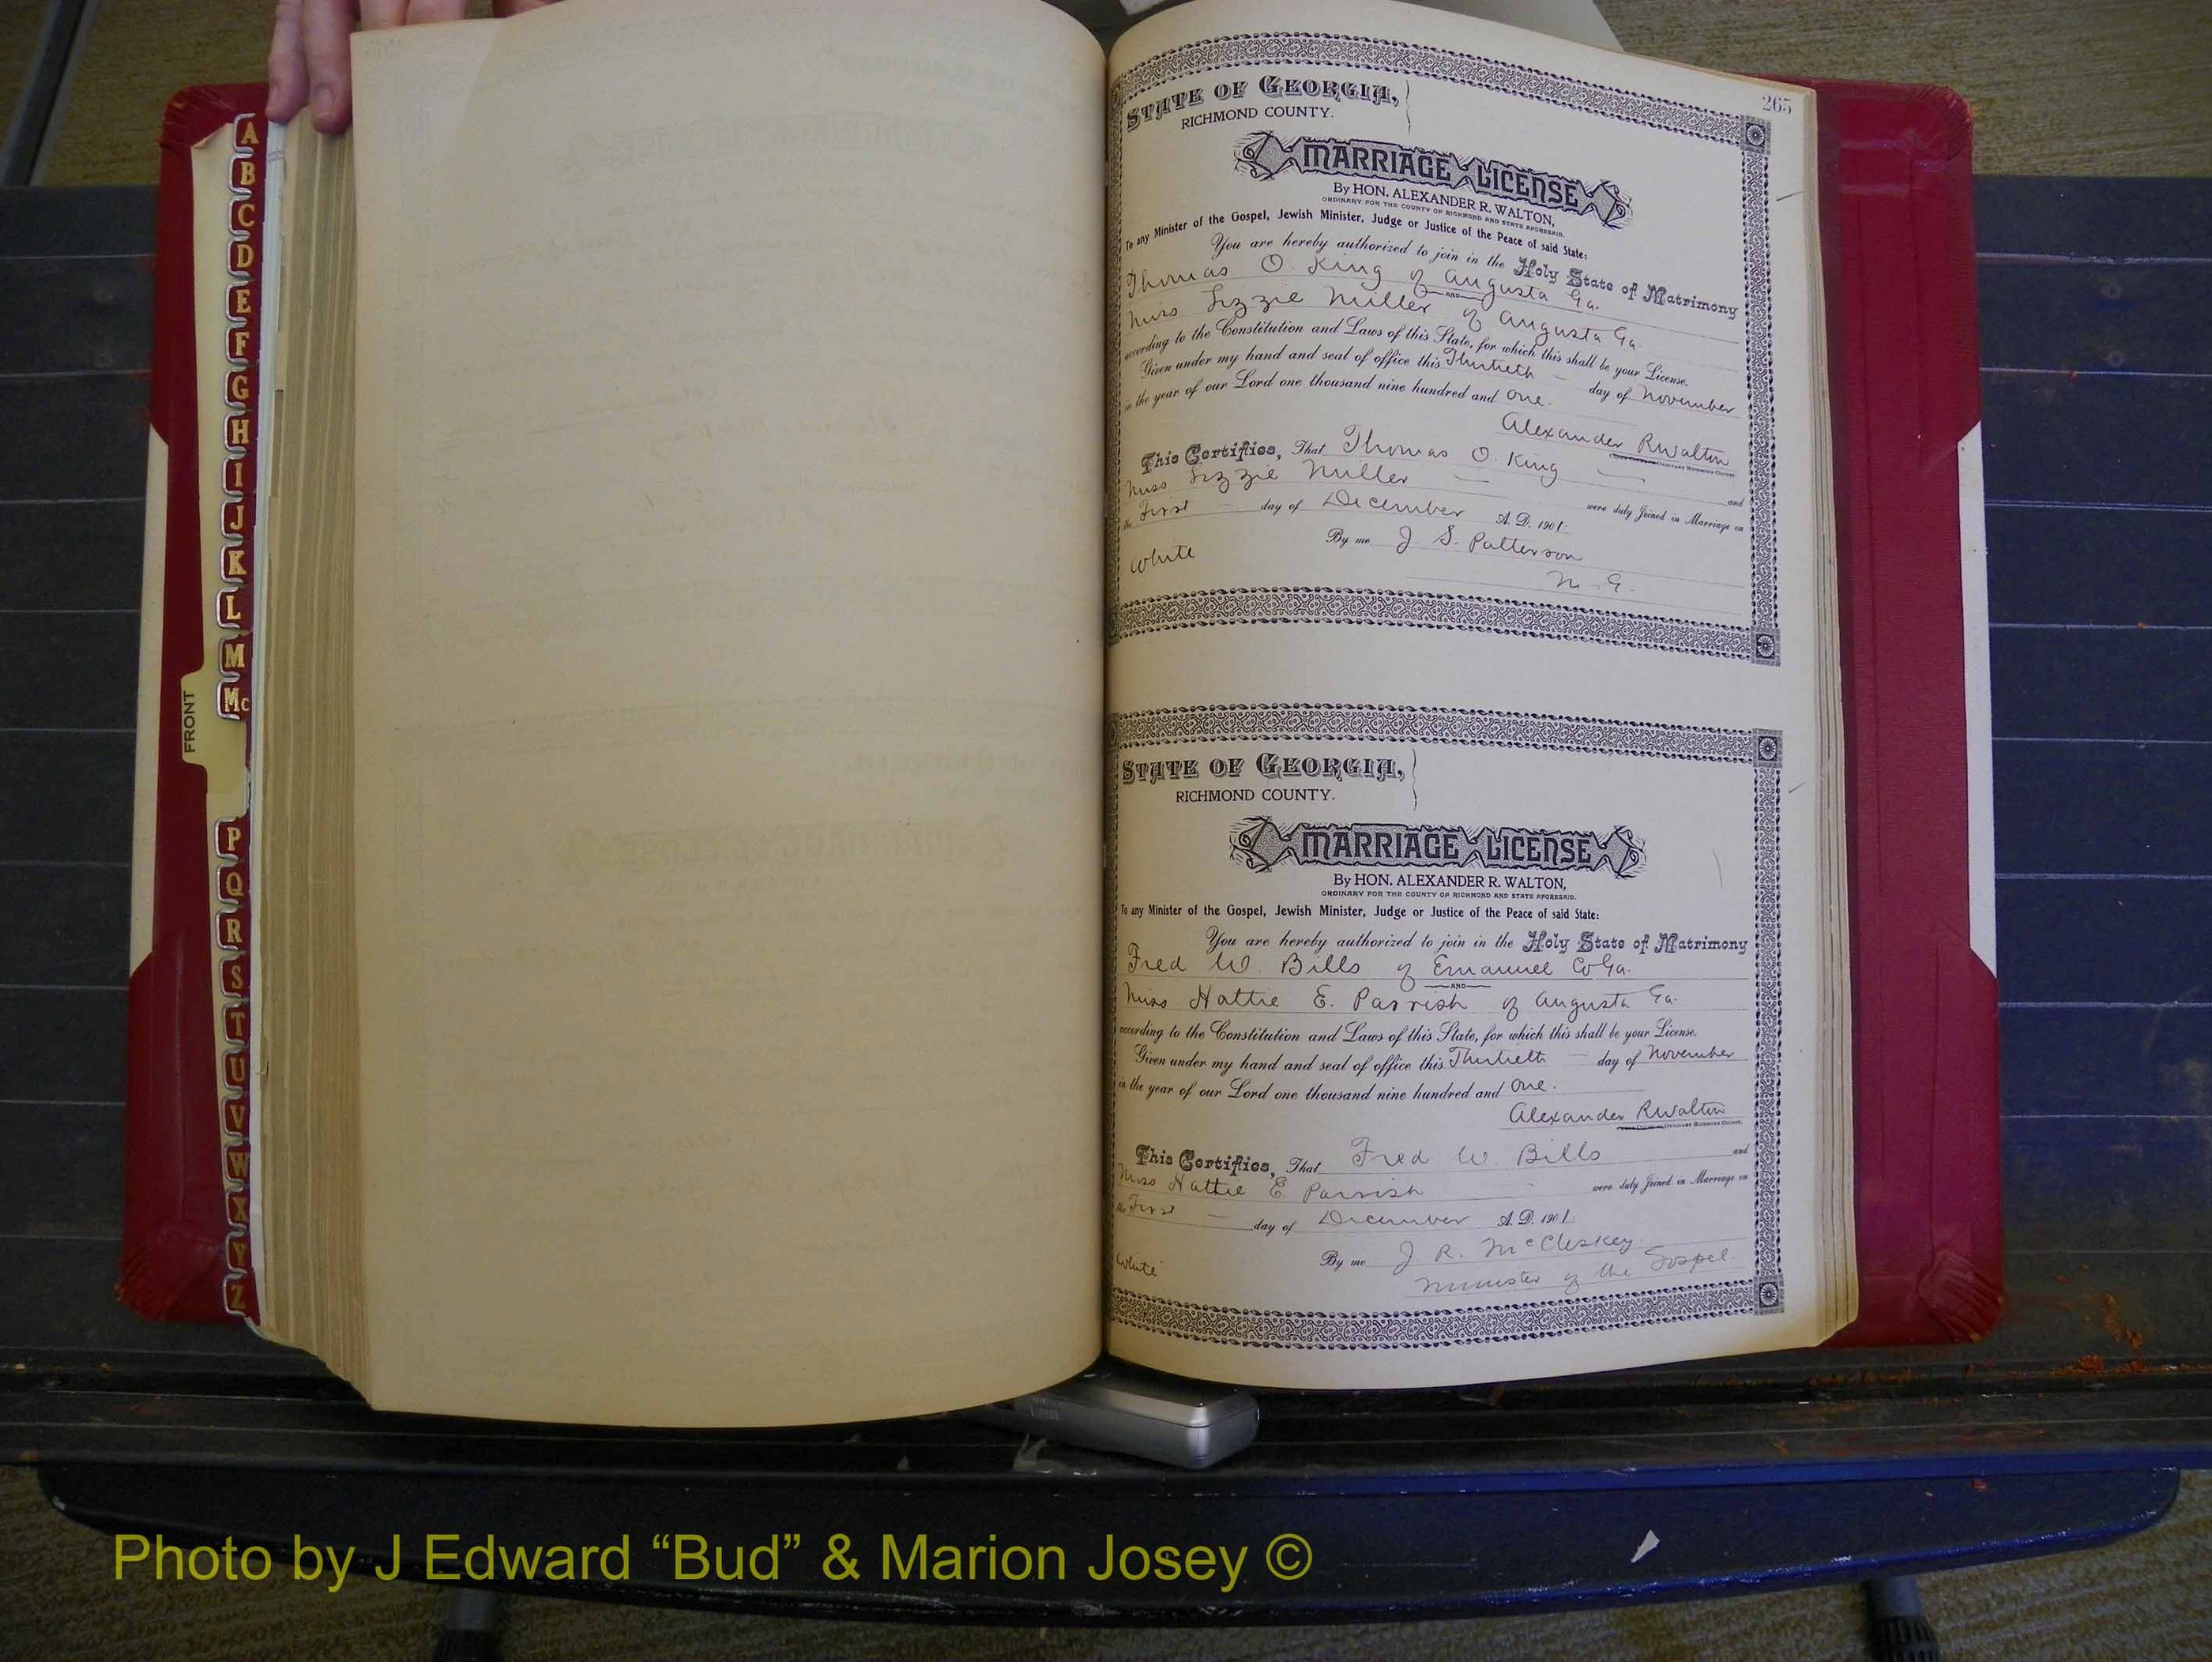 A
B
C
D
E
F
G
H
I
J
K
L
M
Mc
FRONT
P
Q
R
S
T
U
V
W
X
Y
Z
265
STATE OF GEORGIA,
RICHMOND COUNTY.
MARRIAGE LICENSE
By HON. ALEXANDER R. WALTON,
ORDINARY FOR THE COUNTY OF RICHMOND AND STATE AFORESAID.
To any Minister of the Gospel, Jewish Minister, Judge or Justice of the Peace of said State:
You are hereby authorized to join in the Holy State of Matrimony
Thomas O. King of Augusta Ga.
AND
Miss Lizzie Miller of Augusta Ga.
according to the Constitution and Laws of this State, for which this shall be your License.
Given under my hand and seal of office this Thirtieth day of November
in the year of our Lord one thousand nine hundred and One.
Alexander R Walton
ORDINARY RICHMOND COUNTY.
This Certifies, That Thomas O. King and
Miss Lizzie Miller were duly Joined in Marriage on
the First day of December A. D. 1901.
By me J. S. Patterson
White
M. G.
STATE OF GEORGIA,
RICHMOND COUNTY.
MARRIAGE LICENSE
By HON. ALEXANDER R. WALTON,
ORDINARY FOR THE COUNTY OF RICHMOND AND STATE AFORESAID.
To any Minister of the Gospel, Jewish Minister, Judge or Justice of the Peace of said State:
You are hereby authorized to join in the Holy State of Matrimony
Fred W. Bills of Emanuel Co Ga.
AND
Miss Hattie E. Parrish of Augusta Ga.
according to the Constitution and Laws of this State, for which this shall be your License.
Given under my hand and seal of office this Thirtieth day of November
in the year of our Lord one thousand nine hundred and One.
Alexander R Walton
ORDINARY RICHMOND COUNTY.
This Certifies, That Fred W. Bills and
Miss Hattie E. Parrish were duly Joined in Marriage on
the First day of December A. D. 1901.
By me J R. McCleskey
White
Minister of the Gospel.
Photo by J Edward “Bud” & Marion Josey ©